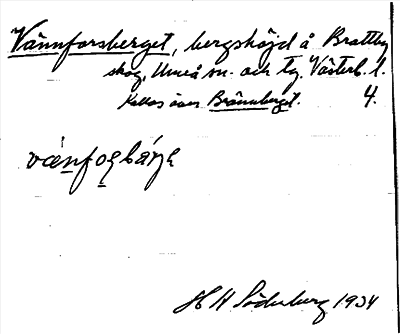 Vännforsberget, bergshöjd å Brattby
skog, Umeå sn. och tg. Västerb. l.
Kallas även Brännberget. 4.
H H Söderberg 1934